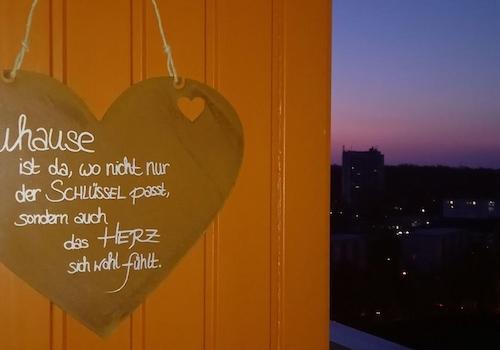 uhause
ist da, wo nicht nur
der SCHLÜSSEL passt,
sondern auch
das HERZ
sich wohl fühlt.